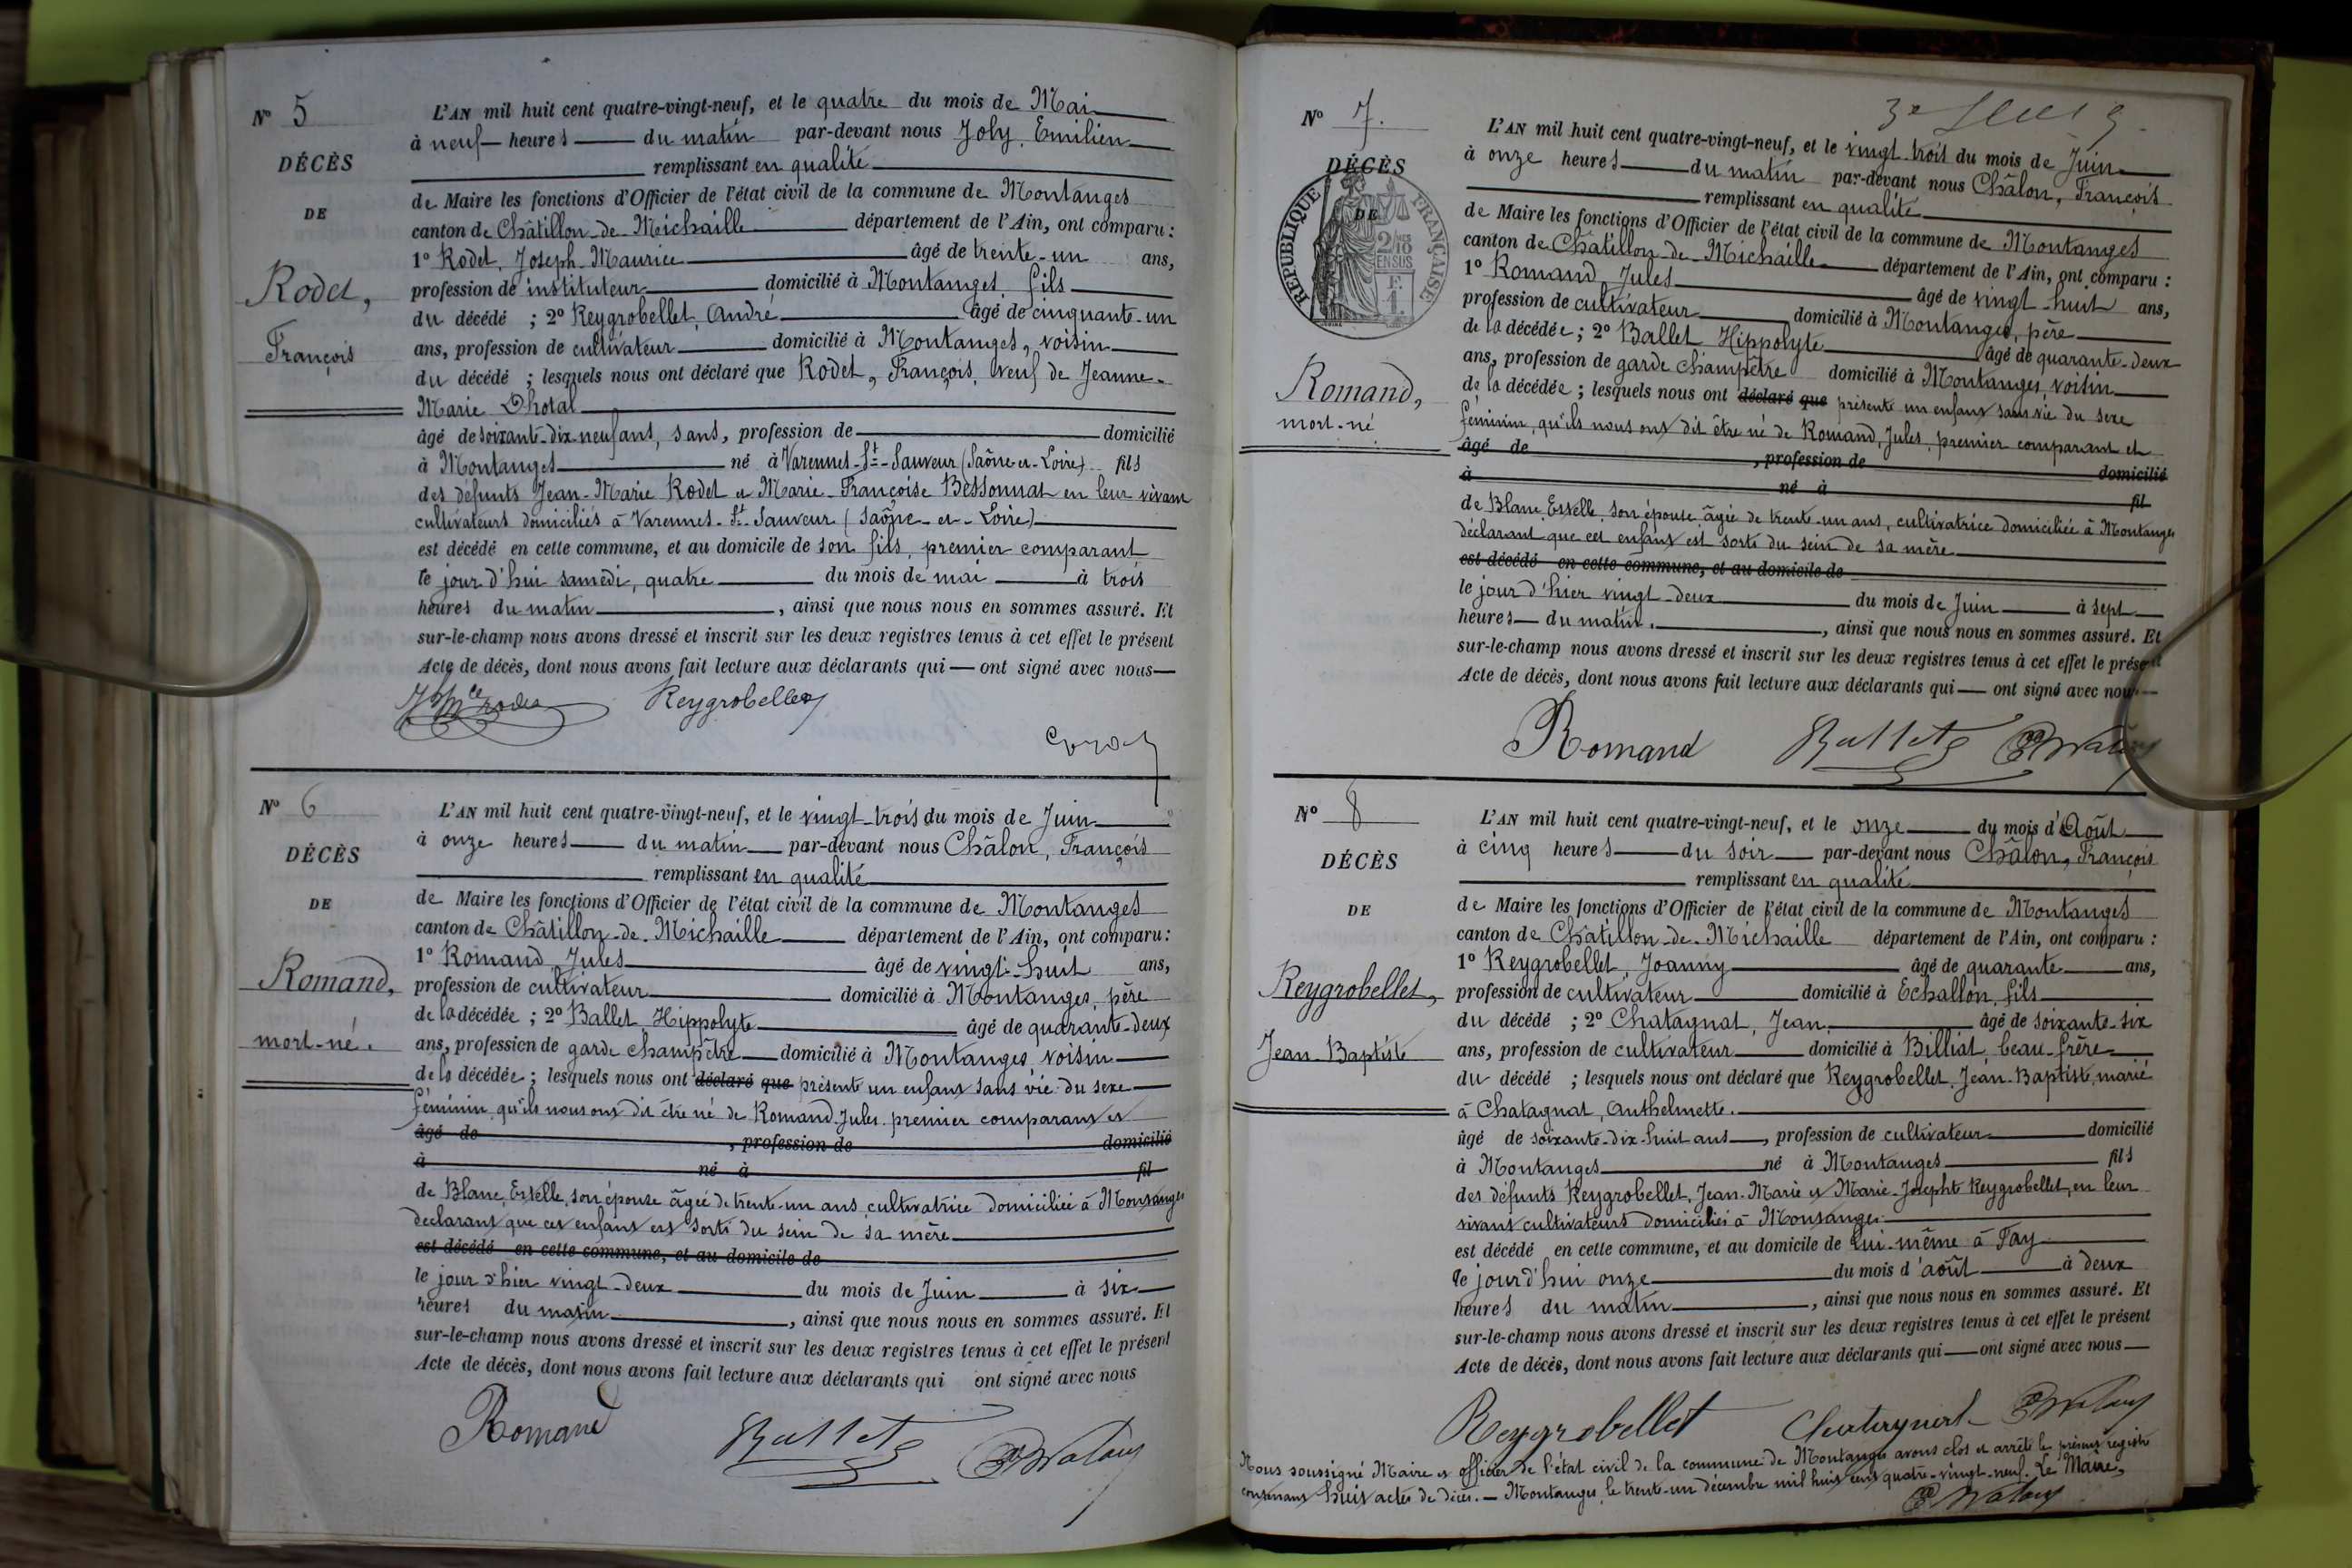 N° 5
DÉCÈS
DE
Rodet,
François
L'AN mil huit cent quatre-vingt-neuf, et le quatre du mois de Mai
à neuf heures du matin par-devant nous Joly, Emilien
remplissant en qualité
de Maire les fonctions d'Officier de l'état civil de la commune de Montanges
canton de Châtillon-de-Michaille département de l'Ain, ont comparu :
1° Rodet, Joseph-Maurice âgé de trente-un ans,
profession de instituteur domicilié à Montanges, fils
du décédé ; 2° Reygrobellet, André âgé de cinquante-un
ans, profession de cultivateur domicilié à Montanges, voisin
du décédé ; lesquels nous ont déclaré que Rodet, François, veuf de Jeanne-
Marie Dhotal
âgé de soixante-dix-neuf ans, sans, profession de domicilié
à Montanges né à Varennes-St-Sauveur (Saône-et-Loire) fils
des défunts Jean-Marie Rodet et Marie-Françoise Bessonnat en leur vivant
cultivateurs domiciliés à Varennes-St-Sauveur (Saône-et-Loire)
est décédé en cette commune, et au domicile de son fils, premier comparant
le jour d'hui samedi, quatre du mois de mai à trois
heures du matin, ainsi que nous nous en sommes assuré. Et
sur-le-champ nous avons dressé et inscrit sur les deux registres tenus à cet effet le présent
Acte de décès, dont nous avons fait lecture aux déclarants qui — ont signé avec nous —
Reygrobellet
N° 6
DÉCÈS
DE
Romand,
mort-né.
L'AN mil huit cent quatre-vingt-neuf, et le vingt-trois du mois de Juin
à onze heures du matin par-devant nous Châlon, François
remplissant en qualité
de Maire les fonctions d'Officier de l'état civil de la commune de Montanges
canton de Châtillon-de-Michaille département de l'Ain, ont comparu :
1° Romand, Jules âgé de vingt-huit ans,
profession de cultivateur domicilié à Montanges, père
de la décédée ; 2° Ballet, Hippolyte âgé de quarante-deux
ans, profession de garde champêtre domicilié à Montanges, voisin
de la décédée ; lesquels nous ont déclaré que présenté un enfant sans vie du sexe
féminin, qu'ils nous ont dit être né de Romand, Jules, premier comparant et
âgé de , profession de domicilié
à né à fil
de Blanc, Estelle, son épouse âgée de trente-un ans, cultivatrice domiciliée à Montanges
déclarant que cet enfant est sorti du sein de sa mère
est décédé en cette commune, et au domicile de
le jour d'hier vingt-deux du mois de Juin à six
heures du matin, ainsi que nous nous en sommes assuré. Et
sur-le-champ nous avons dressé et inscrit sur les deux registres tenus à cet effet le présent
Acte de décès, dont nous avons fait lecture aux déclarants qui ont signé avec nous
Romand Ballet
N° 7.
DÉCÈS
DE
RÉPUBLIQUE FRANÇAISE
Romand,
mort-né
L'AN mil huit cent quatre-vingt-neuf, et le vingt-trois du mois de Juin
à onze heures du matin par-devant nous Châlon, François
remplissant en qualité
de Maire les fonctions d'Officier de l'état civil de la commune de Montanges
canton de Châtillon-de-Michaille département de l'Ain, ont comparu :
1° Romand, Jules âgé de vingt-huit ans,
profession de cultivateur domicilié à Montanges, père
de la décédée ; 2° Ballet, Hippolyte âgé de quarante-deux
ans, profession de garde champêtre domicilié à Montanges, voisin
de la décédée ; lesquels nous ont déclaré que présenté un enfant sans vie du sexe
féminin, qu'ils nous ont dit être né de Romand, Jules, premier comparant et
âgé de , profession de domicilié
à né à fil
de Blanc, Estelle, son épouse âgée de trente-un ans, cultivatrice domiciliée à Montanges
déclarant que cet enfant est sorti du sein de sa mère
est décédé en cette commune, et au domicile de
le jour d'hier vingt-deux du mois de Juin à sept
heures du matin, ainsi que nous nous en sommes assuré. Et
sur-le-champ nous avons dressé et inscrit sur les deux registres tenus à cet effet le présent
Acte de décès, dont nous avons fait lecture aux déclarants qui — ont signé avec nous —
Romand Ballet
N° 8
DÉCÈS
DE
Reygrobellet,
Jean-Baptiste
L'AN mil huit cent quatre-vingt-neuf, et le onze du mois d'Août
à cinq heures du soir par-devant nous Châlon, François
remplissant en qualité
de Maire les fonctions d'Officier de l'état civil de la commune de Montanges
canton de Châtillon-de-Michaille département de l'Ain, ont comparu :
1° Reygrobellet, Joanny âgé de quarante ans,
profession de cultivateur domicilié à Echallon, fils
du décédé ; 2° Chatagnat, Jean, âgé de soixante-six
ans, profession de cultivateur domicilié à Billiat, beau-frère
du décédé ; lesquels nous ont déclaré que Reygrobellet, Jean-Baptiste, marié
à Chatagnat, Anthelmette.
âgé de soixante-dix-huit ans, profession de cultivateur domicilié
à Montanges né à Montanges fils
des défunts Reygrobellet, Jean-Marie et Marie-Josephte Reygrobellet, en leur
vivant cultivateurs domiciliés à Montanges
est décédé en cette commune, et au domicile de lui-même à Fay
le jour d'hui onze du mois d'août à deux
heures du matin, ainsi que nous nous en sommes assuré. Et
sur-le-champ nous avons dressé et inscrit sur les deux registres tenus à cet effet le présent
Acte de décès, dont nous avons fait lecture aux déclarants qui — ont signé avec nous —
Reygrobellet Chatagnat
Nous soussigné Maire et officier de l'état civil de la commune de Montanges avons clos et arrêté le présent registre
contenant huit actes de décès. — Montanges, le trente-un décembre mil huit cent quatre-vingt-neuf. Le Maire,